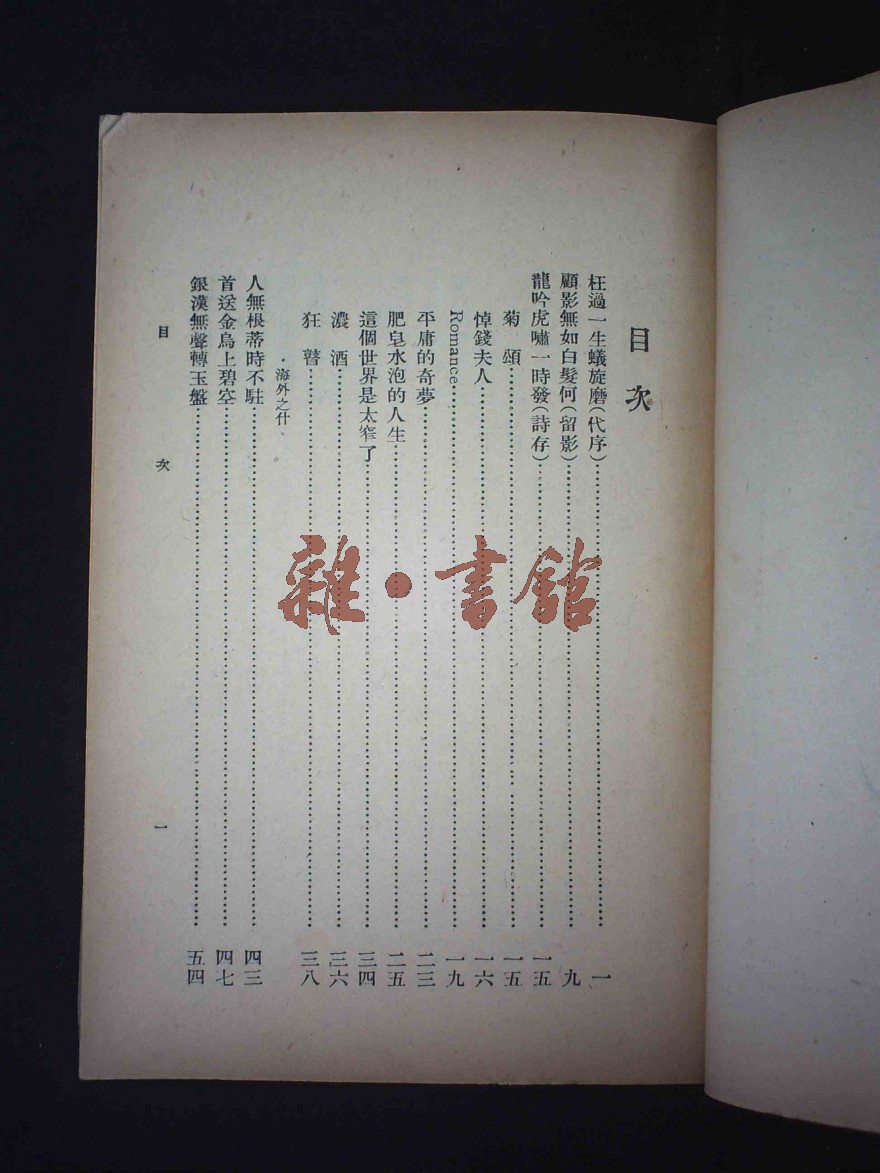 目次
枉過一生蟻旋磨(代序)……一
顧影無如白髮何(留影)……九
龍吟虎嘯一時發(詩存)……一五
菊頌……一五
悼錢夫人……一六
Romance……一九
平庸的奇夢……二三
肥皂水泡的人生……二五
這個世界是太窄了……三四
濃酒……三六
狂瞽……三八
·海外之什、
人無根蒂時不駐……四三
首送金烏上碧空……四七
銀漢無聲轉玉盤……五四
目次
一
雜·書館